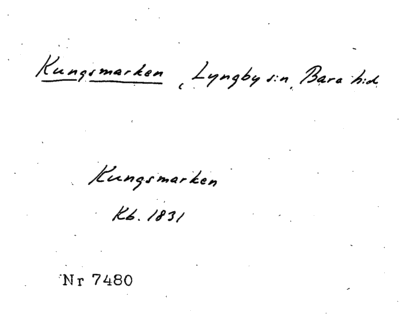 Kungsmarken, Lyngby s:n, Bara h:d
Kungsmarken
Kb. 1831
Nr 7480